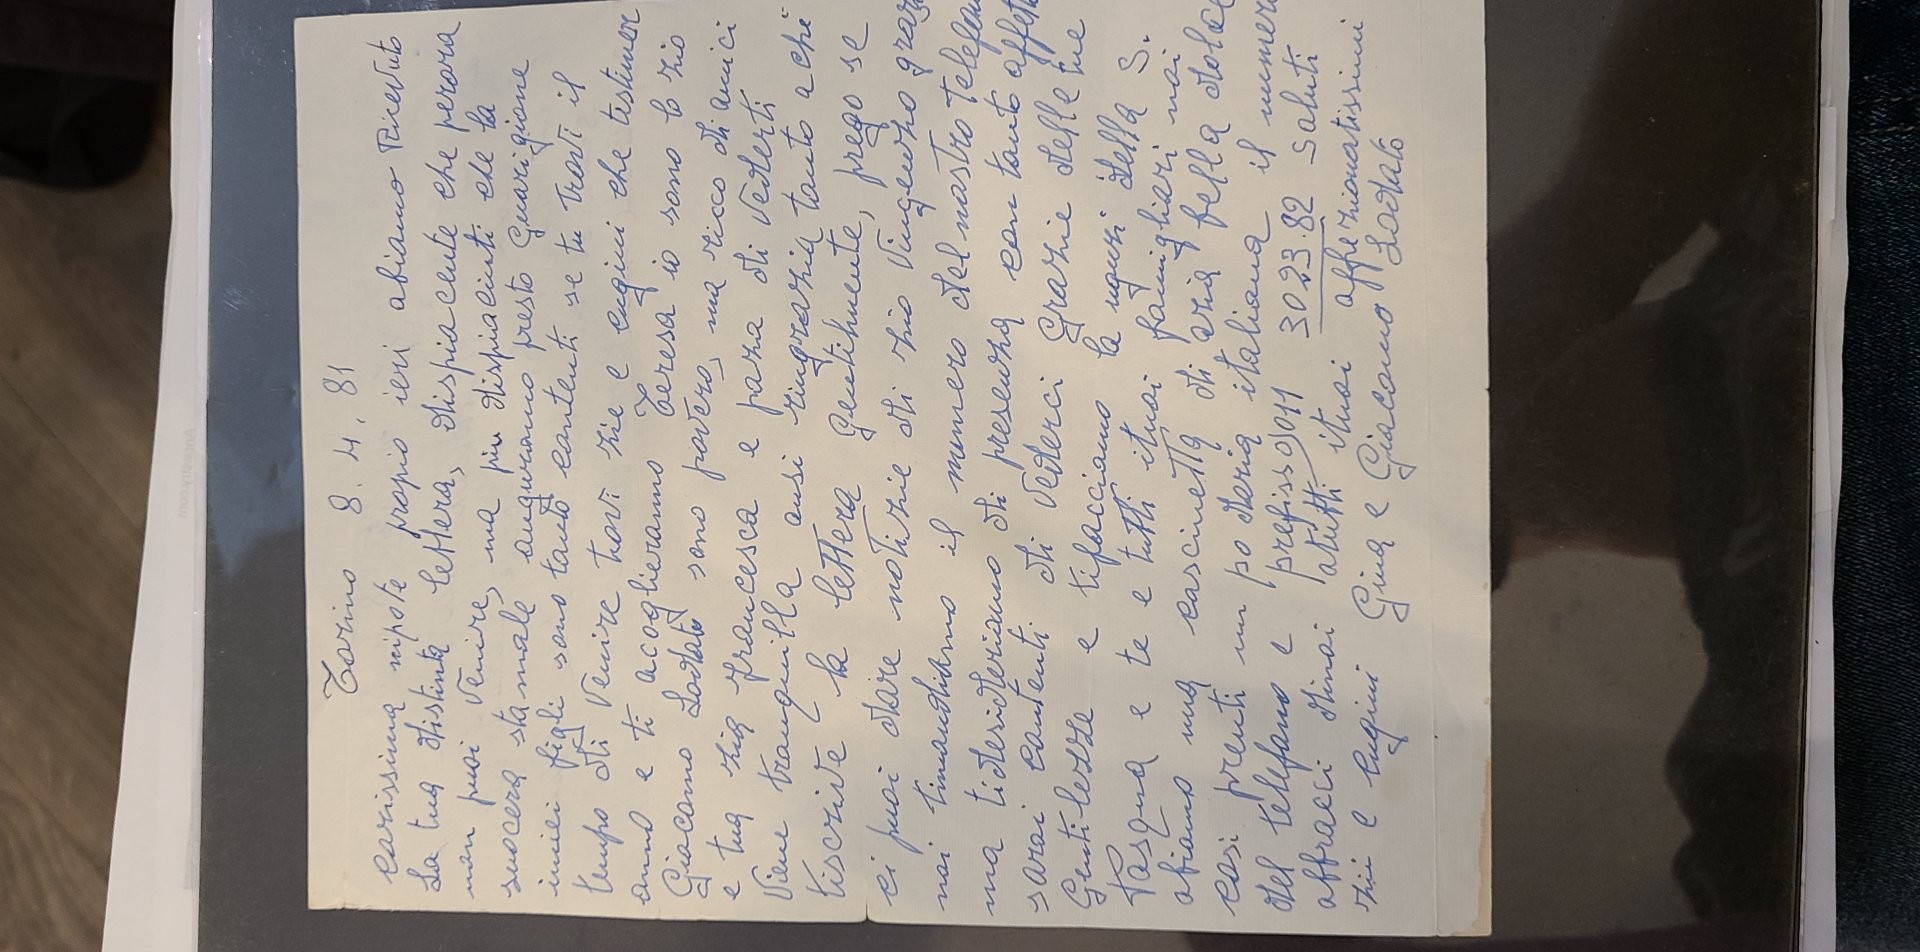 Torino 8.4.81
carissima nipote propio ieri abiamo ricevuto
La tua distinta lettera, dispiacente che perora
non puoi venire, ma piu dispiacenti che la
suocera sta male auguriamo presto Guarigione
imiei figli sono tanto contenti se tu trovi il
tempo di venire trovi zie e cugini che testimor
anno e ti acoglieranno Teresa io sono lo zio
Giacomo Lodato sono povero, ma ricco di amici
e tua zia francesca e pazza di vederti
Viene tranquilla ansi ringrazia tanto a chi
tiscrive la lettera Gentilmente, prego se
ci puoi dare notizie di zio Vingenzo graz
noi timandiamo il numero del nostro telefan
ma tidesideriamo di presenza con tanto affett
sarai contenti di vederci Grazie delle tue
Gentilezze e tifacciamo la uguri della S.
Pasqua e te e tutti ituoi famighiari noi
abiamo una cascinetta di aria bella dolce
cosi prenti un po deria italiana il numer
del telefano e prefisso 011 3023.82 saluti
abbracci dinoi atutti ituoi affezionatissimi
zii e cugini Gina e Giacomo Lodato